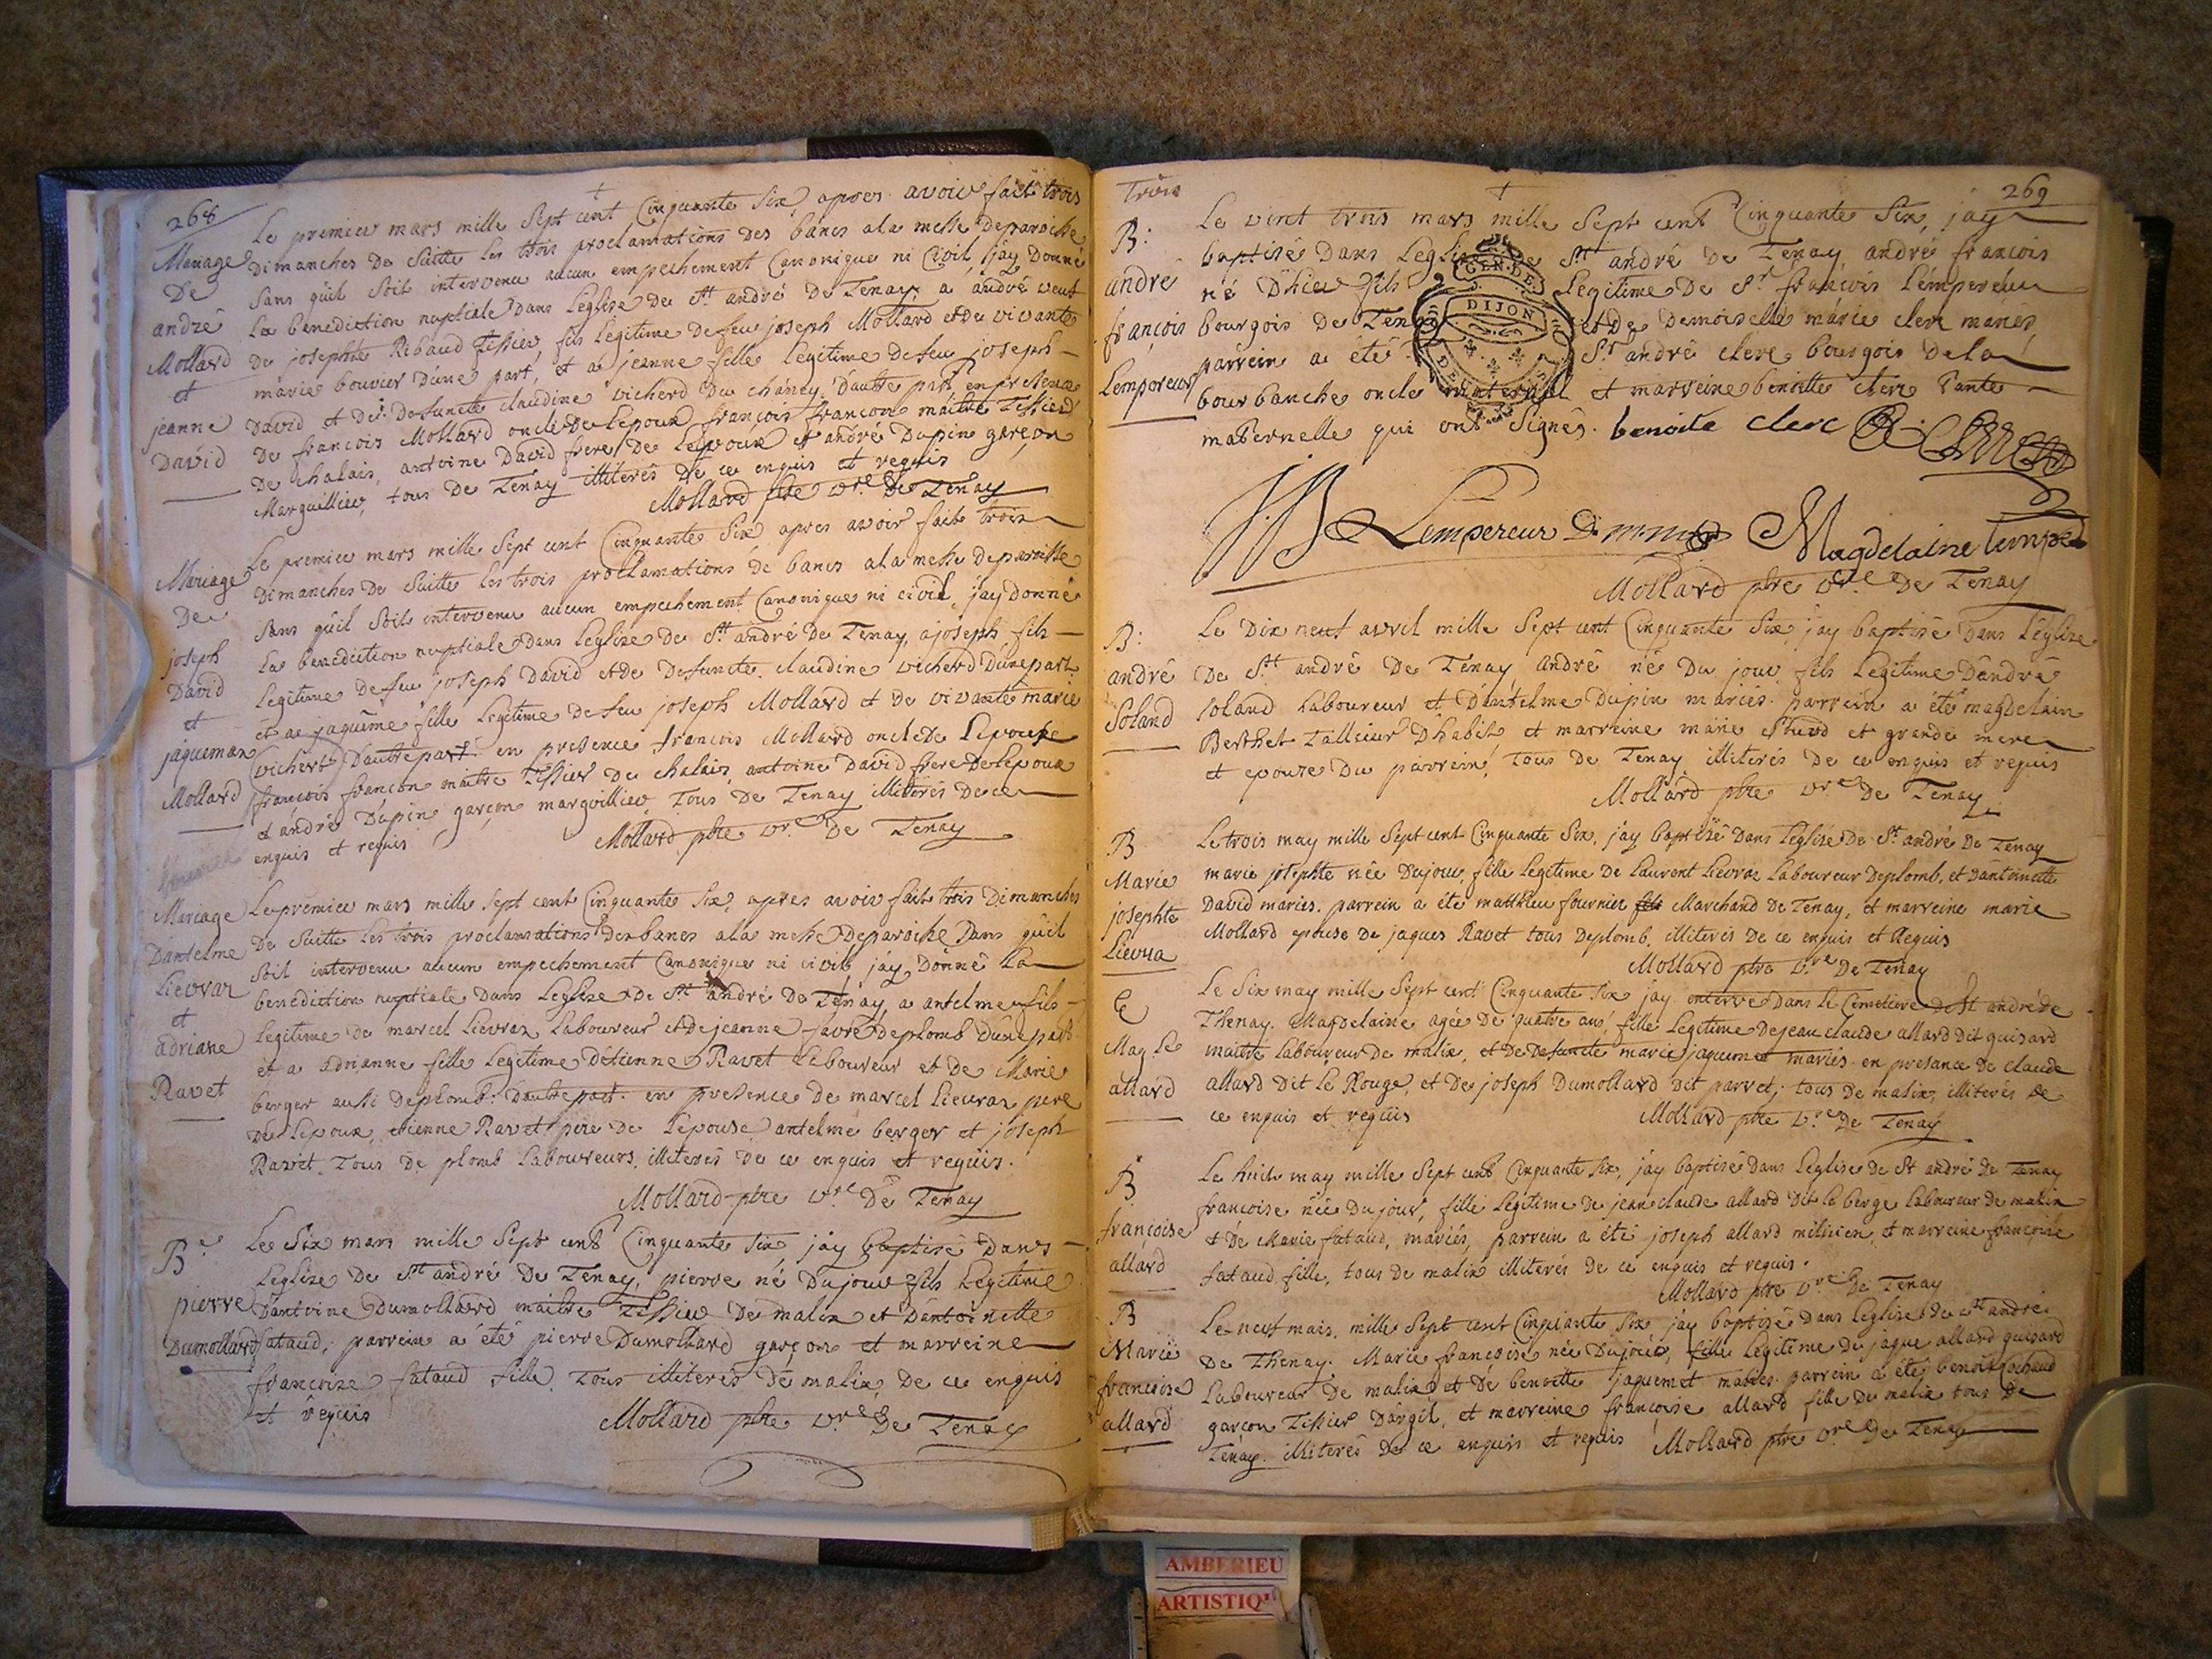 268
Mariage
De
andré
Mollard
et
jeanne
David
Le premier mars mille Sept cent Cinquante Six, apres avoir fait trois
Dimanches de Suitte les trois proclamations des bancs a la messe deparoisse
Sans quil soit intervenu aucun empechement Canonique ni Civil, jay Donné
La benediction nuptiale dans Leglise de St andré De Tenay, a andré veuf
De josephte Ribaud Tissier, fils legitime defeu joseph Mollard et de vivante
marie bouvier Dune part, et a jeanne fille legitime defeu joseph
David et de defuncte claudine vicherd du chanay Dautre part en presence
De francois Mollard oncle de Lepoux francois françon maitre Tissier
De chalais, antoine David frere De Lepoux et andré Dupin garçon
Marguillier, tous de Tenay illiterés de ce enquis et requis
Mollard ptre vre De Tenay
Mariage
De
joseph
David
et
jaqueman
Mollard
Le premier mars mille Sept cent Cinquante Six, apres avoir fait trois
Dimanches de Suitte les trois proclamations de bancs a la messe deparoisse
Sans quil soit intervenu aucun empechement Canonique ni civil, jay Donné
La benediction nuptiale dans Leglise de St andré De Tenay, a joseph fils
Legitime defeu joseph David et de defuncte claudine vicherd Dune part
et a jaquême fille legitime defeu joseph Mollard et de vivante marie
(vichert) Dautre part en presence francois Mollard oncle de Lepouse
francois françon maitre tissier de chalais, antoine David frere De Lepoux
et andré Dupin garçon marguillier, Tous de Tenay illiterés de ce
enquis et requis
Mollard ptre vre De Tenay
Mariage
Dantelme
Lievraz
et
adriane
Ravet
Le premier mars mille Sept cent Cinquante Six, apres avoir fait trois Dimanches
De Suitte les trois proclamations des bancs a la messe deparoisse Sans quil
Soit intervenu aucun empechement Canonique ni civil, jay Donné La
benediction nuptiale dans Leglise de St andré De Tenay, a antelme fils
Legitime de marcel Lievraz Laboureur et de jeanne favre deplomb Dune part
et a adrianne fille Legitime Detienne Ravet Laboureur et De Marie
berger aussi deplomb. Dautre part. en presence de marcel Lievraz pere
De Lepoux, etienne Ravet pere De Lepouse antelme berger et joseph
Ravet Tous De plomb Laboureurs, illiterés de ce enquis et requis.
Mollard ptre vre De Tenay
B
pierre
Dumollard
Le Six mars mille Sept cent Cinquante Six jay baptisé Dans
Leglise de St andré De Tenay, pierre né Dujour fils Legitime
Dantoine Dumollard maitre Tissier De malix et Dantoinette
fataud, parrein a été pierre Dumollard garçon et marreine
francoise fataud fille Tous illiterés De malix, De ce enquis
et requis
Mollard ptre vre De Tenay
Trois
269
B:
andré
françois
Lempereur
Le vint trois mars mille Sept cent Cinquante Six, jay
baptisé Dans Leglise De St andré De Tenay andré francois
né Dhier fils Legitime De Sr francois Lempereur
bourgois De Tenay et de Demoiselle marie clerc mariés,
parrein a été Sr andré clerc bourgois De la
bourbanche oncle maternel et marreine benoitte clerc Tante
maternelle qui ont Signés. benoite clerc
GEN. DE
DIJON
Lempereur Magdelaine Lemper
Mollard ptre vre De Tenay
B:
andré
Soland
Le Dix neuf avril mille Sept cent Cinquante Six jay baptisé Dans Léglise
De St andré De Tenay André né Du jour fils Legitime Dandré
Soland Laboureur et Dantelme Dupin mariés. parrein a été magdelain
Berthet Tallieur Dhabit et marreine marie et grande mere
et epouse Du parrein, Tous De Tenay illiterés De ce enquis et requis
Mollard ptre vre De Tenay
B
Marie
josephte
Lievra
Le trois may mille Sept cent Cinquante Six, jay baptisé Dans Leglise de St andré De Tenay
marie josephte née Dujour, fille Legitime De Laurent Lievraz Laboureur Deplomb, et Dantoinette
David mariés. parrein a été matthieu fournier fils Marchand De Tenay, et marreine marie
Mollard epouse De jaques Ravet tous Deplomb, illiterés De ce enquis et Requis
Mollard ptre vre De Tenay
E
Mag le
allard
Le Six may mille Sept cent Cinquante Six jay enterré Dans le Cimetiere de St andré de
Thenay. Magdelaine agée De quatre ans, fille Legitime Dejean claude allard Dit guisard
maitre Laboureur De malix, et De Defuncte marie jaquemet mariés. en presance de claude
allard Dit Le Rouge, et De joseph Dumollard Dit parret, tous De malix, illiterés de
ce enquis et requis
Mollard ptre vre De Tenay
B
françoise
allard
Le huit may mille Sept cent Cinquante Six, jay baptisé Dans Leglise De St andré De Tenay
francoise née Du jour, fille Legitime De jean claude allard Dit Le berge Laboureur de malix
et De Marie fataud, mariés, parrein a été joseph allard milicien, et marreine francoise
fataud fille, tous de malix illiterés De ce enquis et requis.
Mollard ptre vre De Tenay
B
Marie
françoise
allard
Le neuf mais, mille Sept cent Cinquante Six jay baptisé dans Leglise de St andré
De Thenay. Marie françoise née Dujour, fille Legitime de jaque allard guisard
Laboureur De malix et De benoitte jaquemet mariés. parrein a été benoit Cochaud
garçon Tissier Dargit, et marreine françoise allard fille De malix tous de
Tenay. illiterés De ce enquis et requis
Mollard ptre vre De Tenay
AMBERIEU
ARTISTIQ